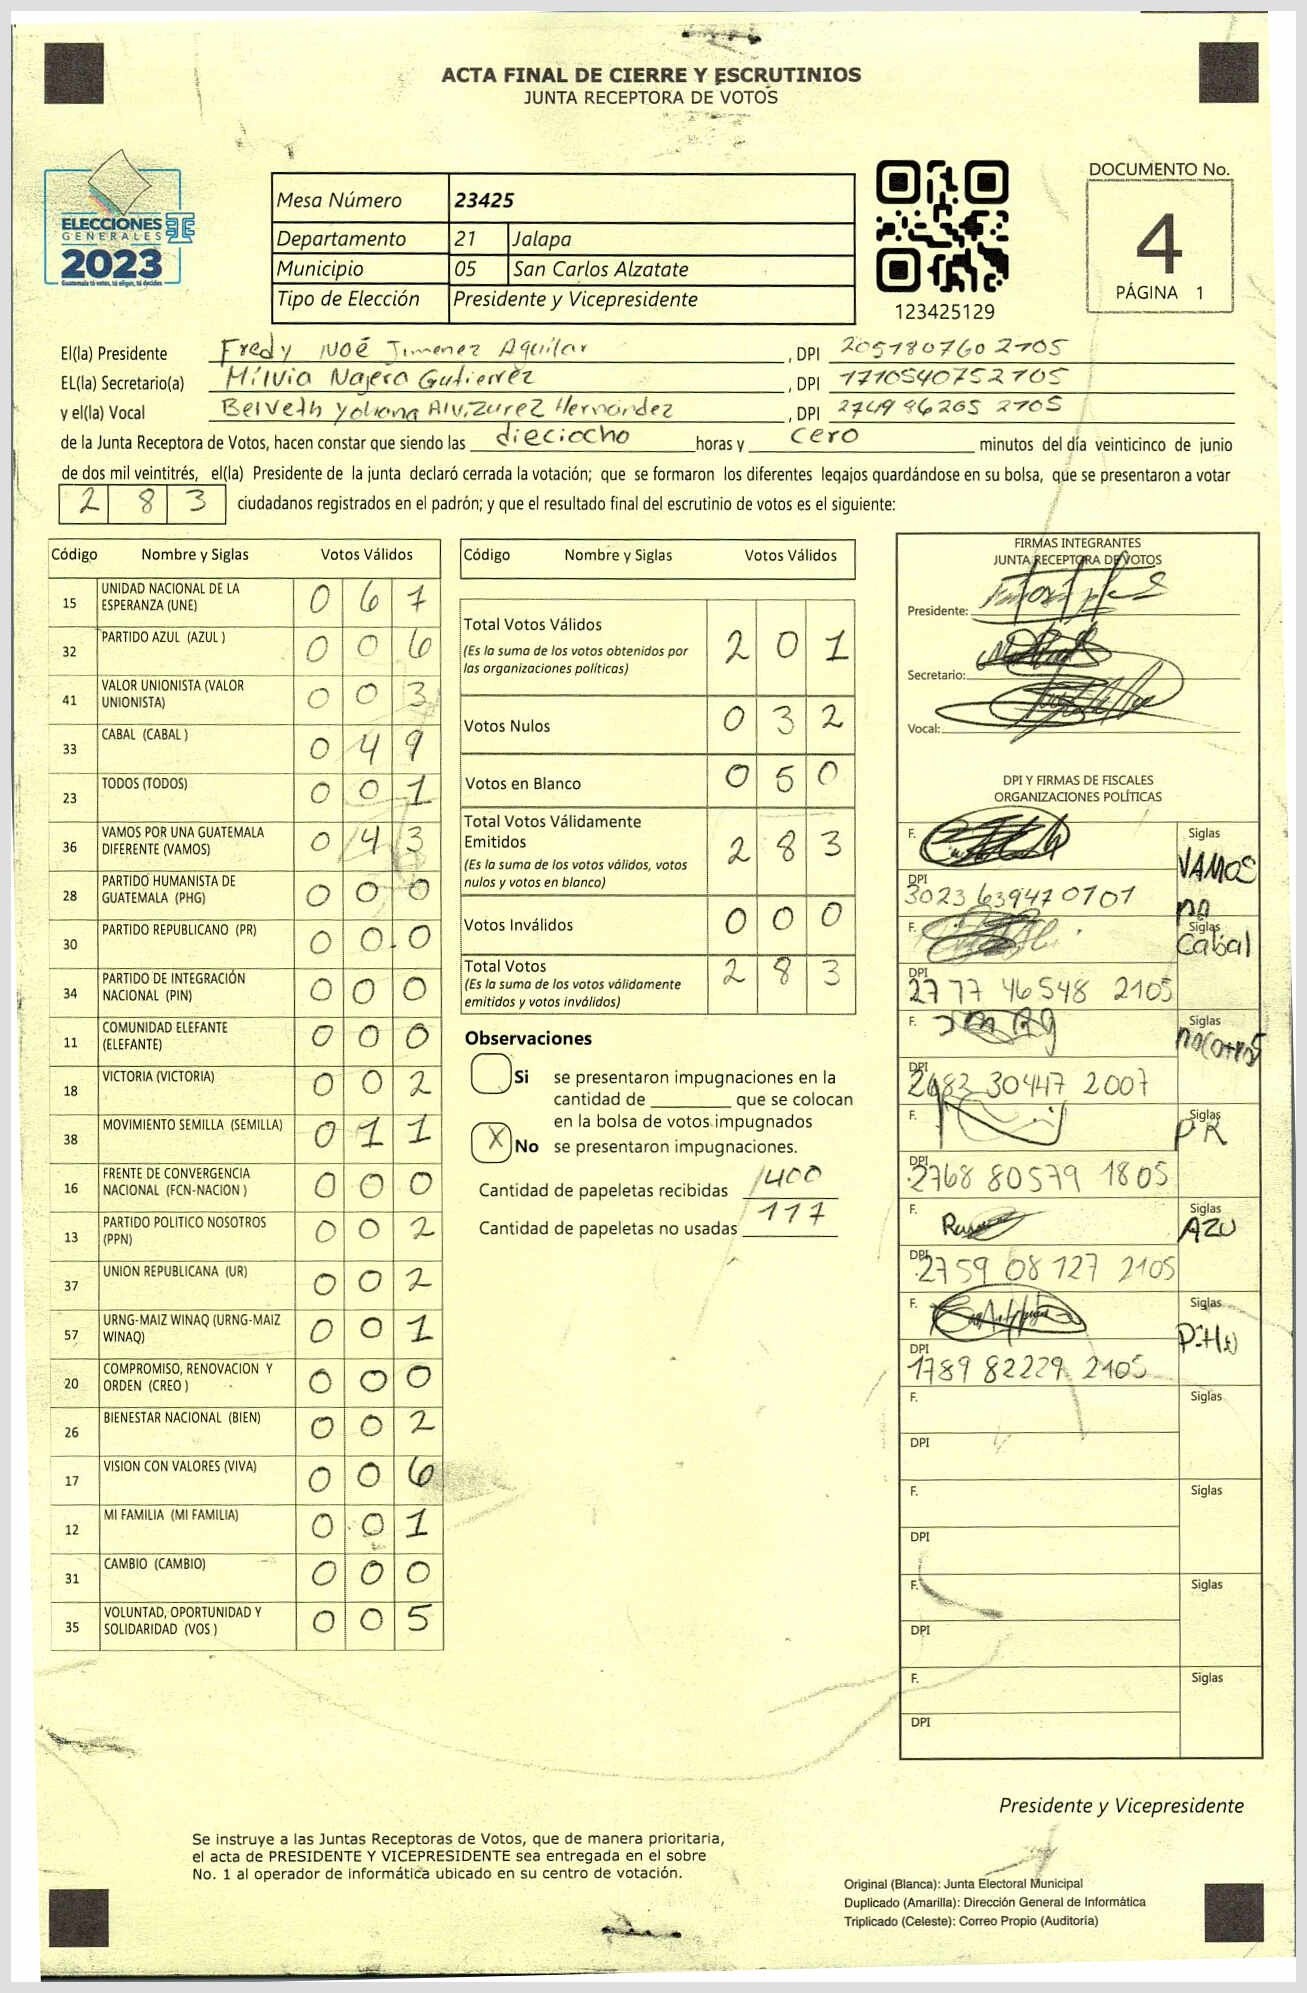 ACTA FINAL DE CIERRE Y ESCRUTINIOS
JUNTA RECEPTORA DE VOTOS
ELECCIONES
GENERALES
2023
Guatemala tú votas, tú eliges, tú decides
Mesa Número 23425
Departamento 21 Jalapa
Municipio 05 San Carlos Alzatate
Tipo de Elección Presidente y Vicepresidente
123425129
DOCUMENTO No.
4
PÁGINA 1
El(la) Presidente Fredy Noé Jimenez Aguilar, DPI 205180760 2105
EL(la) Secretario(a) Milvia Najera Gutierrez, DPI 1710540752105
y el(la) Vocal Belveth Yohana Alvizurez Hernández, DPI 274986205 2105
de la Junta Receptora de Votos, hacen constar que siendo las dieciocho horas y cero minutos del día veinticinco de junio
de dos mil veintitrés, el(la) Presidente de la junta declaró cerrada la votación; que se formaron los diferentes legajos guardándose en su bolsa, que se presentaron a votar
283 ciudadanos registrados en el padrón; y que el resultado final del escrutinio de votos es el siguiente:
Código Nombre y Siglas Votos Válidos
15 UNIDAD NACIONAL DE LA ESPERANZA (UNE) 067
32 PARTIDO AZUL (AZUL ) 006
41 VALOR UNIONISTA (VALOR UNIONISTA) 003
33 CABAL (CABAL ) 049
23 TODOS (TODOS) 001
36 VAMOS POR UNA GUATEMALA DIFERENTE (VAMOS) 043
28 PARTIDO HUMANISTA DE GUATEMALA (PHG) 000
30 PARTIDO REPUBLICANO (PR) 000
34 PARTIDO DE INTEGRACIÓN NACIONAL (PIN) 000
11 COMUNIDAD ELEFANTE (ELEFANTE) 000
18 VICTORIA (VICTORIA) 002
38 MOVIMIENTO SEMILLA (SEMILLA) 011
16 FRENTE DE CONVERGENCIA NACIONAL (FCN-NACION ) 000
13 PARTIDO POLITICO NOSOTROS (PPN) 002
37 UNION REPUBLICANA (UR) 002
57 URNG-MAIZ WINAQ (URNG-MAIZ WINAQ) 001
20 COMPROMISO, RENOVACION Y ORDEN (CREO ) 000
26 BIENESTAR NACIONAL (BIEN) 002
17 VISION CON VALORES (VIVA) 006
12 MI FAMILIA (MI FAMILIA) 001
31 CAMBIO (CAMBIO) 000
35 VOLUNTAD, OPORTUNIDAD Y SOLIDARIDAD (VOS ) 005
Código Nombre y Siglas Votos Válidos
Total Votos Válidos 201
(Es la suma de los votos obtenidos por
las organizaciones políticas)
Votos Nulos 032
Votos en Blanco 050
Total Votos Válidamente
Emitidos 283
(Es la suma de los votos válidos, votos
nulos y votos en blanco)
Votos Inválidos 000
Total Votos 283
(Es la suma de los votos válidamente
emitidos y votos inválidos)
Observaciones
Si se presentaron impugnaciones en la
cantidad de ________ que se colocan
en la bolsa de votos impugnados
X No se presentaron impugnaciones.
Cantidad de papeletas recibidas 400
Cantidad de papeletas no usadas 117
FIRMAS INTEGRANTES
JUNTA RECEPTORA DE VOTOS
Presidente:
Secretario:
Vocal:
DPI Y FIRMAS DE FISCALES
ORGANIZACIONES POLÍTICAS
F. Siglas VAMOS
DPI 3023 63947 0101
F. Siglas Cabal
DPI 2777 46548 2105
F. Siglas
DPI 2682 30447 2007
F. Siglas PR
DPI 2768 80579 1805
F. Siglas AZU
DPI 2759 08127 2105
F. Siglas
DPI 1789 82229 2105
F. Siglas
DPI
F. Siglas
DPI
F. Siglas
DPI
F. Siglas
DPI
Presidente y Vicepresidente
Se instruye a las Juntas Receptoras de Votos, que de manera prioritaria,
el acta de PRESIDENTE Y VICEPRESIDENTE sea entregada en el sobre
No. 1 al operador de informática ubicado en su centro de votación.
Original (Blanca): Junta Electoral Municipal
Duplicado (Amarilla): Dirección General de Informática
Triplicado (Celeste): Correo Propio (Auditoría)